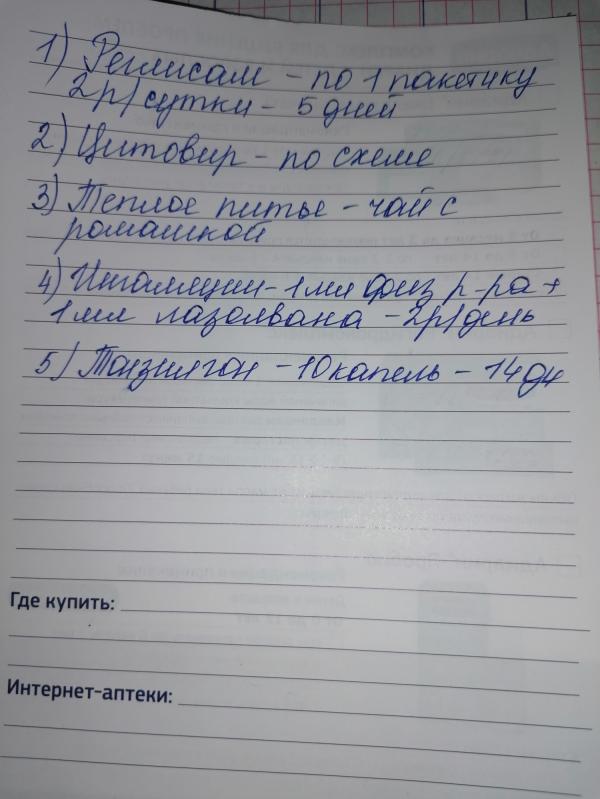 1) Реглисам - по 1 пакетику
2р/сутки - 5 дней
2) Цитовир - по схеме
3) Теплое питье - чай с
ромашкой
4) Ингаляции - 1 мл физ р-ра +
1 мл лазолвана - 2р/день
5) Тонзилгон - 10 капель - 14 дн
Где купить:
Интернет-аптеки: